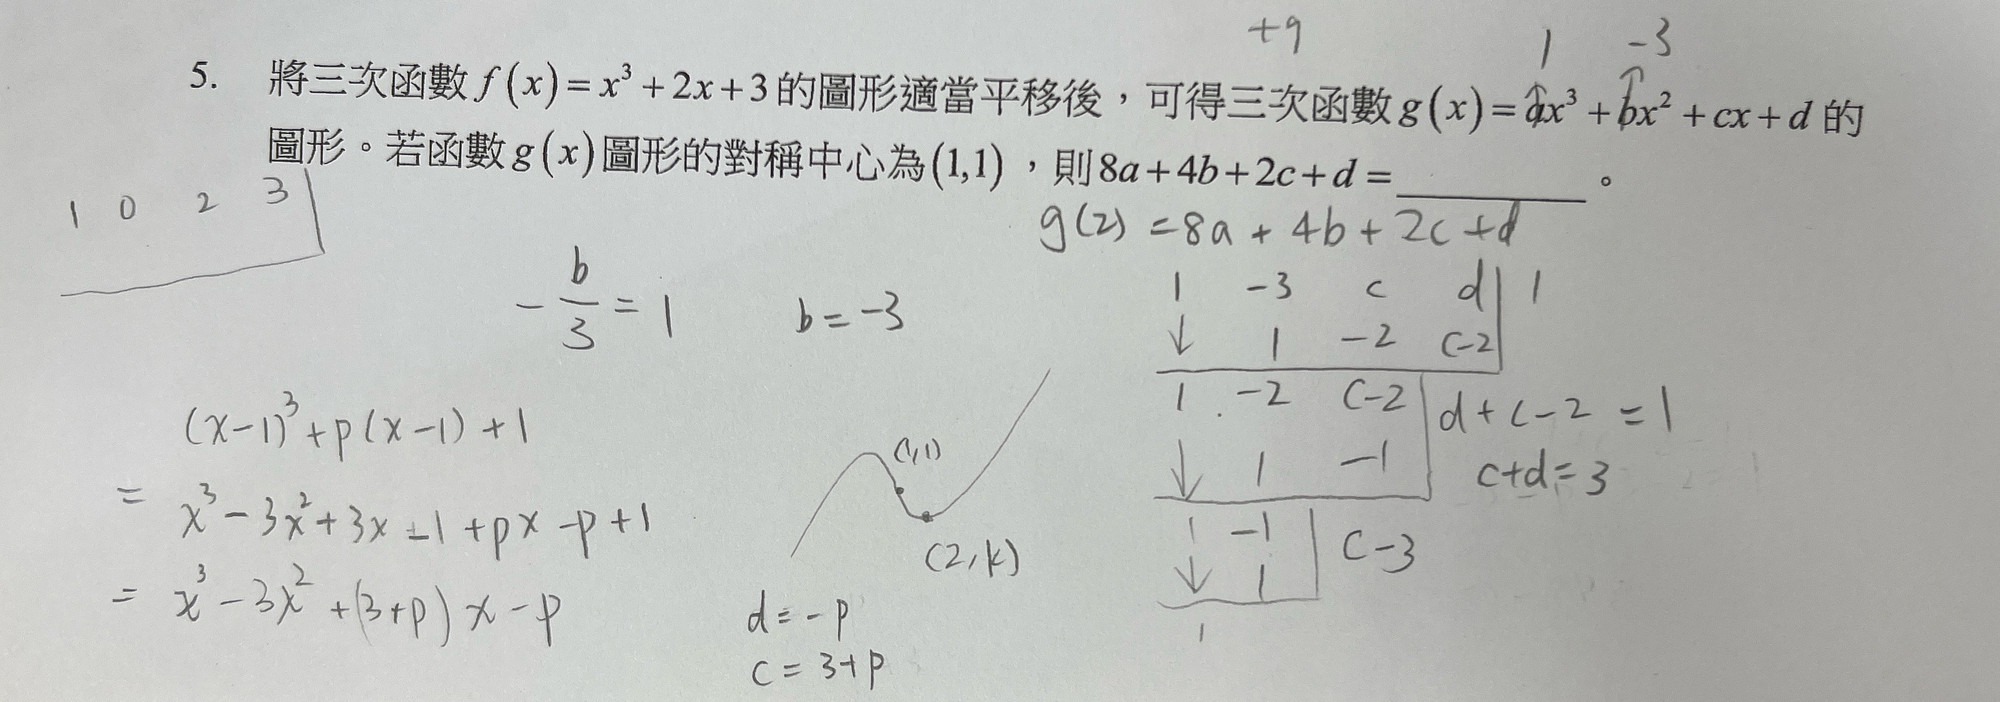 +9
1 -3
5. 將三次函數 f(x)=x³+2x+3 的圖形適當平移後，可得三次函數 g(x)=ax³+bx²+cx+d 的
圖形。若函數 g(x) 圖形的對稱中心為 (1,1) ，則 8a+4b+2c+d= ______ 。
1 0 2 3
g(2) = 8a + 4b + 2c + d
-b/3 = 1
b = -3
1 -3 c d | 1
↓ 1 -2 c-2
1 -2 c-2 | d+c-2 = 1
↓ 1 -1
c+d = 3
1 -1 | c-3
↓ 1
1
(x-1)³+p(x-1)+1
= x³-3x²+3x-1+px-p+1
= x³-3x²+(3+p)x-p
(1,1)
(2,k)
d = -p
c = 3+p